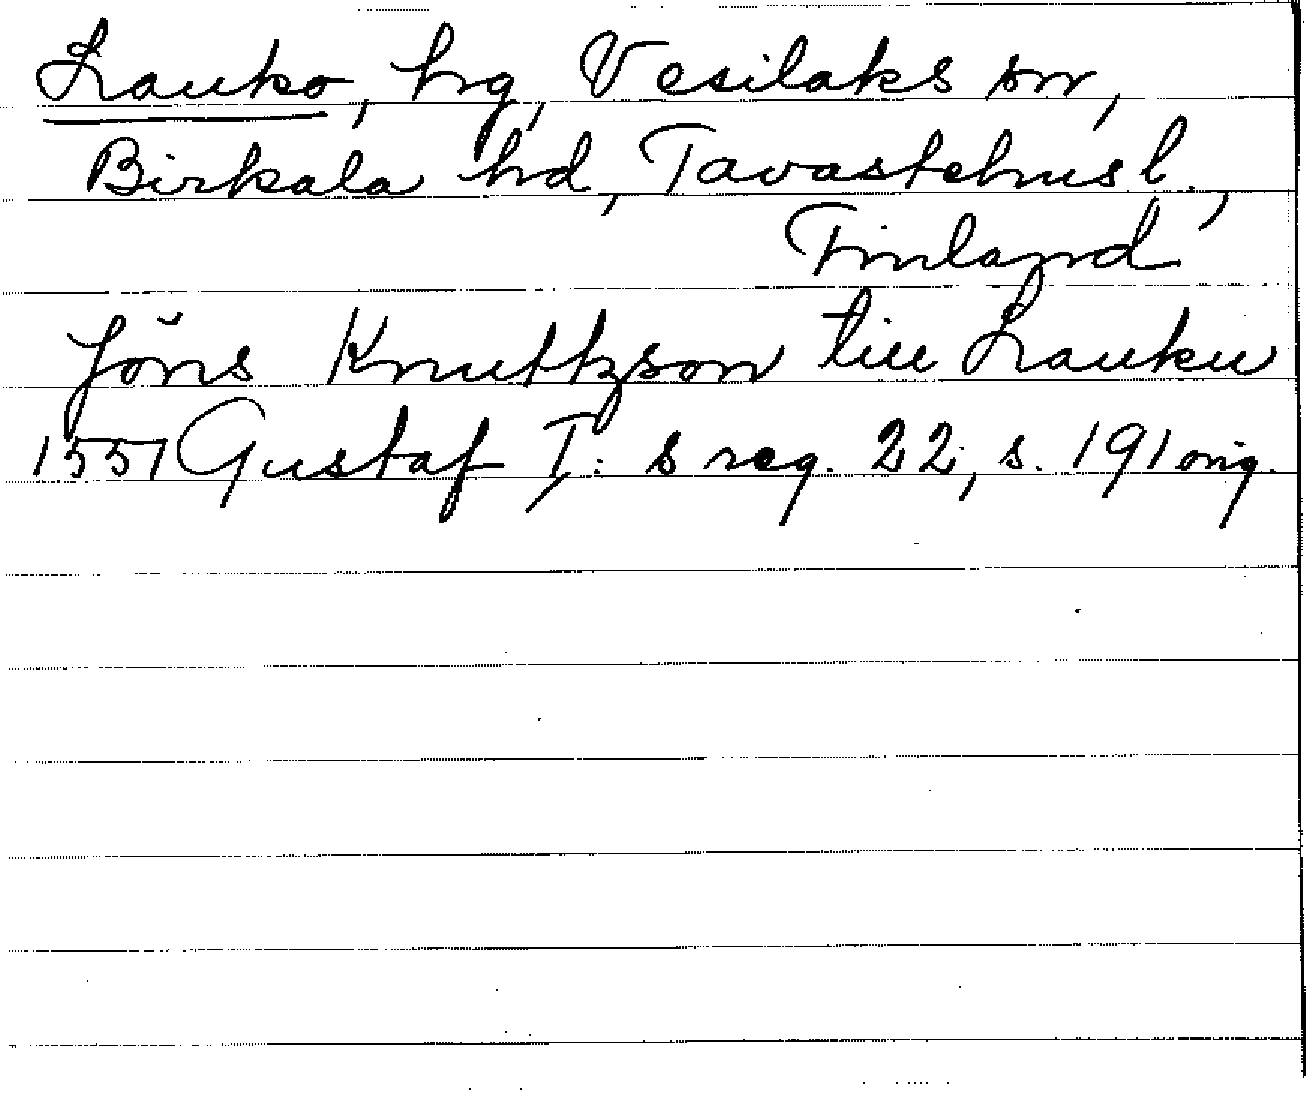 Lauko, hg, Vesilaks sn,
Birkala hd, Tavastehus l.,
Finland
Jöns Knuttzson till Lauku
1557 Gustaf I:s reg. 22, s. 191 orig.